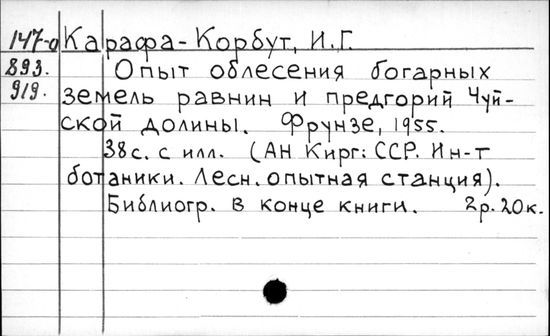 147-о Карафа-Корбут, И.Г.
893. Опыт облесения богарных
919. земель равнин и предгорий Чуй-
ской долины. Фрунзе, 1955.
38с. с илл. (АН Кирг: ССР. Ин-т
ботаники. Лесн. опытная станция).
Библиогр. в конце книги. 2р. 20к.